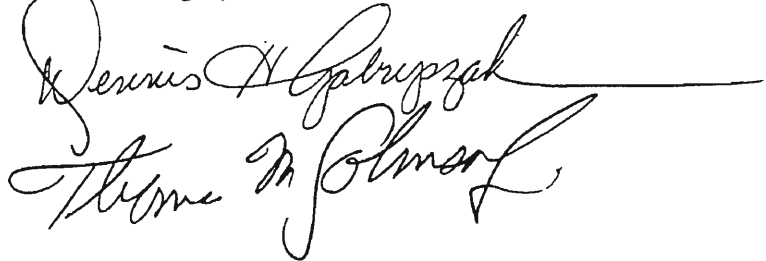 Dennis H Gabryszak
Thomas M Johnson